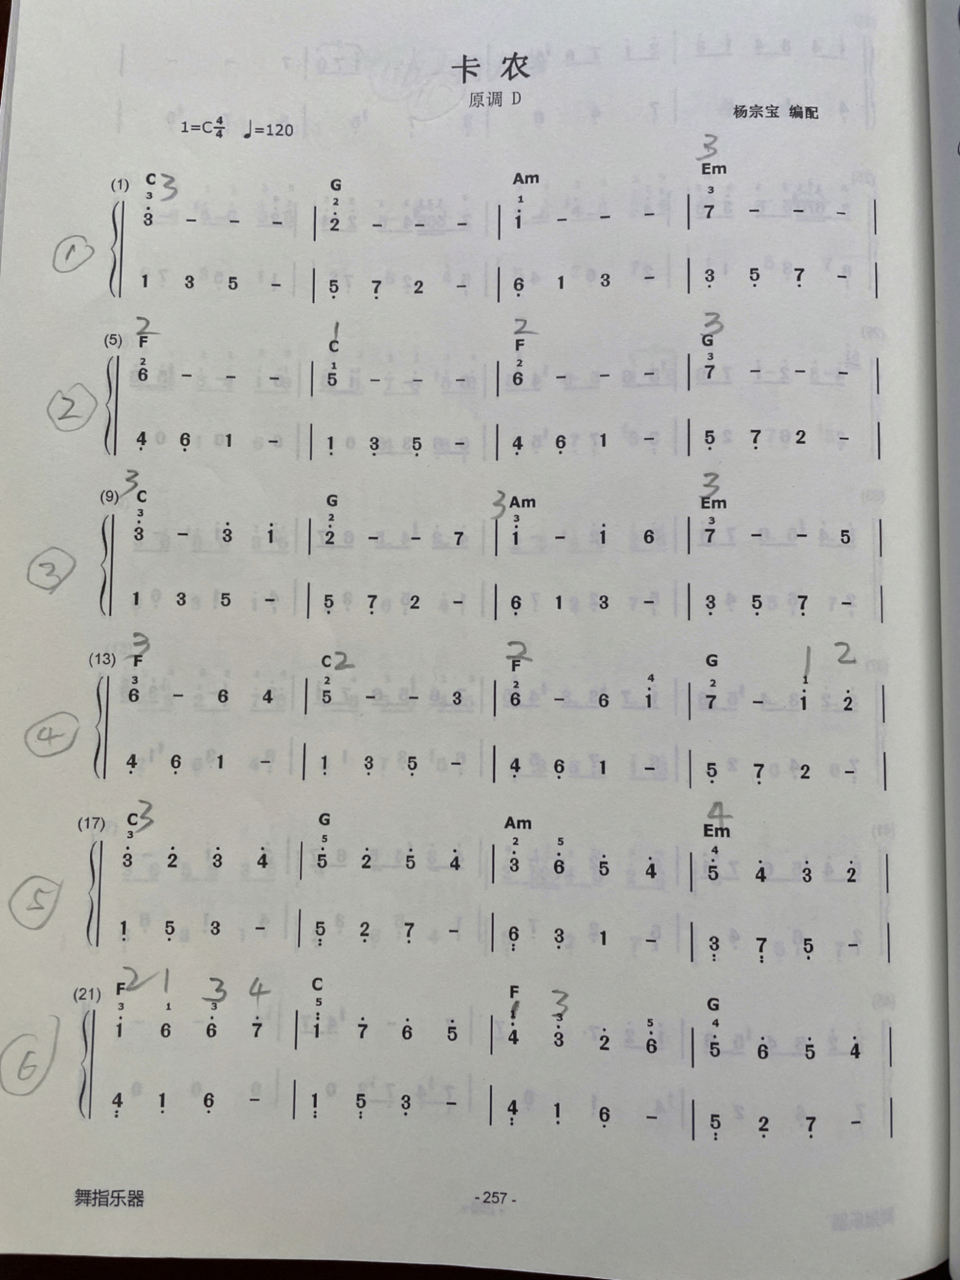 卡农
原调 D
杨宗宝 编配
1=C 4/4 ♩=120
(1) C G Am Em
3 - - - | 2 - - - | 1 - - - | 7 - - - |
1 3 5 - | 5 7 2 - | 6 1 3 - | 3 5 7 - |
(5) F C F G
6 - - - | 5 - - - | 6 - - - | 7 - - - |
4 6 1 - | 1 3 5 - | 4 6 1 - | 5 7 2 - |
(9) C G Am Em
3 - 3 1 | 2 - - 7 | 1 - 1 6 | 7 - - 5 |
1 3 5 - | 5 7 2 - | 6 1 3 - | 3 5 7 - |
(13) F C F G
6 - 6 4 | 5 - - 3 | 6 - 6 1 | 7 - 1 2 |
4 6 1 - | 1 3 5 - | 4 6 1 - | 5 7 2 - |
(17) C G Am Em
3 2 3 4 | 5 2 5 4 | 3 6 5 4 | 5 4 3 2 |
1 5 3 - | 5 2 7 - | 6 3 1 - | 3 7 5 - |
(21) F C F G
1 6 6 7 | 1 7 6 5 | 4 3 2 6 | 5 6 5 4 |
4 1 6 - | 1 5 3 - | 4 1 6 - | 5 2 7 - |
舞指乐器
-257-